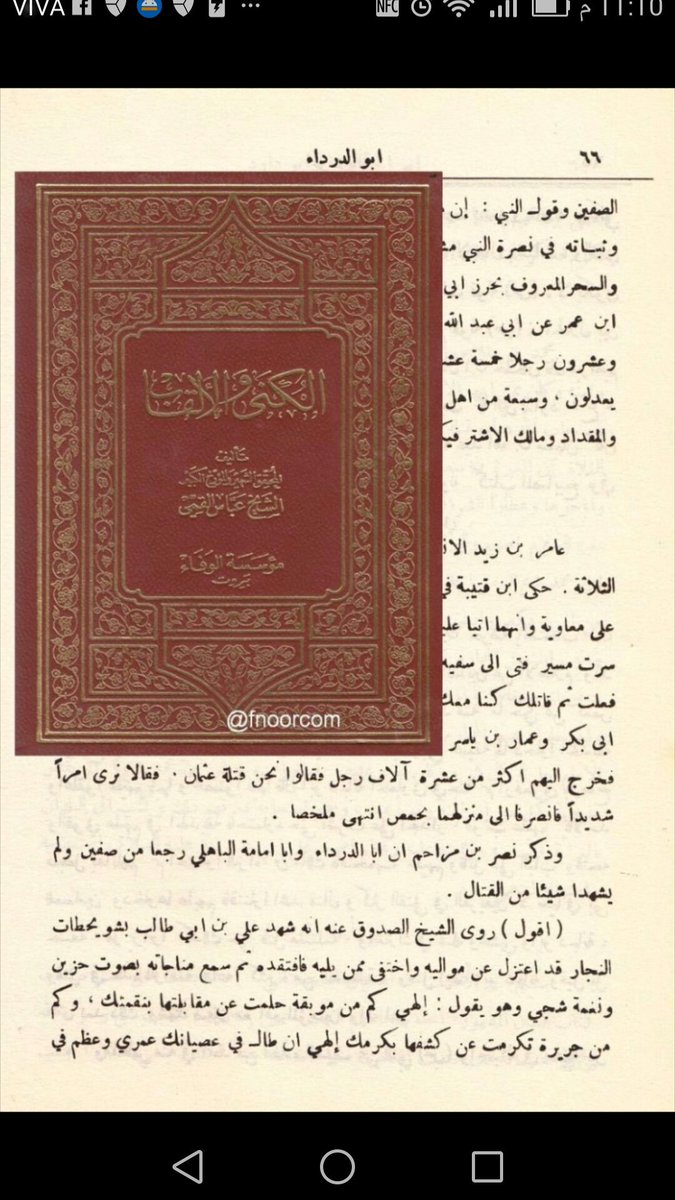 VIVA
NFC
11:10 م
٦٦
ابو الدرداء
الصفين وقول النبي : إن
وثباته في نصرة النبي
والسحر المعروف بحرز ابي
ابن عمر عن ابي عبد الله
وعشرون رجلا خمسة
يعدلون ، وسبعة من اهل
والمقداد ومالك الاشتر
الكنى والألقاب
تأليف
الشيخ عباس القمي
مؤسسة الوفاء
بيروت
@fnoorcom
عامر بن زيد
الثلاثة . حكى ابن قتيبة
على معاوية وانهما اتيا
سرت مسير فتى الى
فعلت ثم قاتلك كنا معك
ابى بكر وعمار بن ياسر
فخرج اليهم اكثر من عشرة آلاف رجل فقالوا نحن قتلة عثمان . فقالا نرى امراً
شديداً فانصرفا الى منزلهما بحمص انتهى ملخصا .
وذكر نصر بن مزاحم ان ابا الدرداء وابا امامة الباهلي رجعا من صفين ولم
يشهدا شيئا من القتال .
( اقول ) روى الشيخ الصدوق عنه انه شهد علي بن ابي طالب بشويحطات
النجار قد اعتزل عن مواليه واختفى ممن يليه فافتقده ثم سمع مناجاته بصوت حزين
ونغمة شجي وهو يقول : إلهي كم من موبقة حلمت عن مقابلتها بنقمتك ، وكم
من جريرة تكرمت عن كشفها بكرمك إلهي ان طال في عصيانك عمري وعظم في